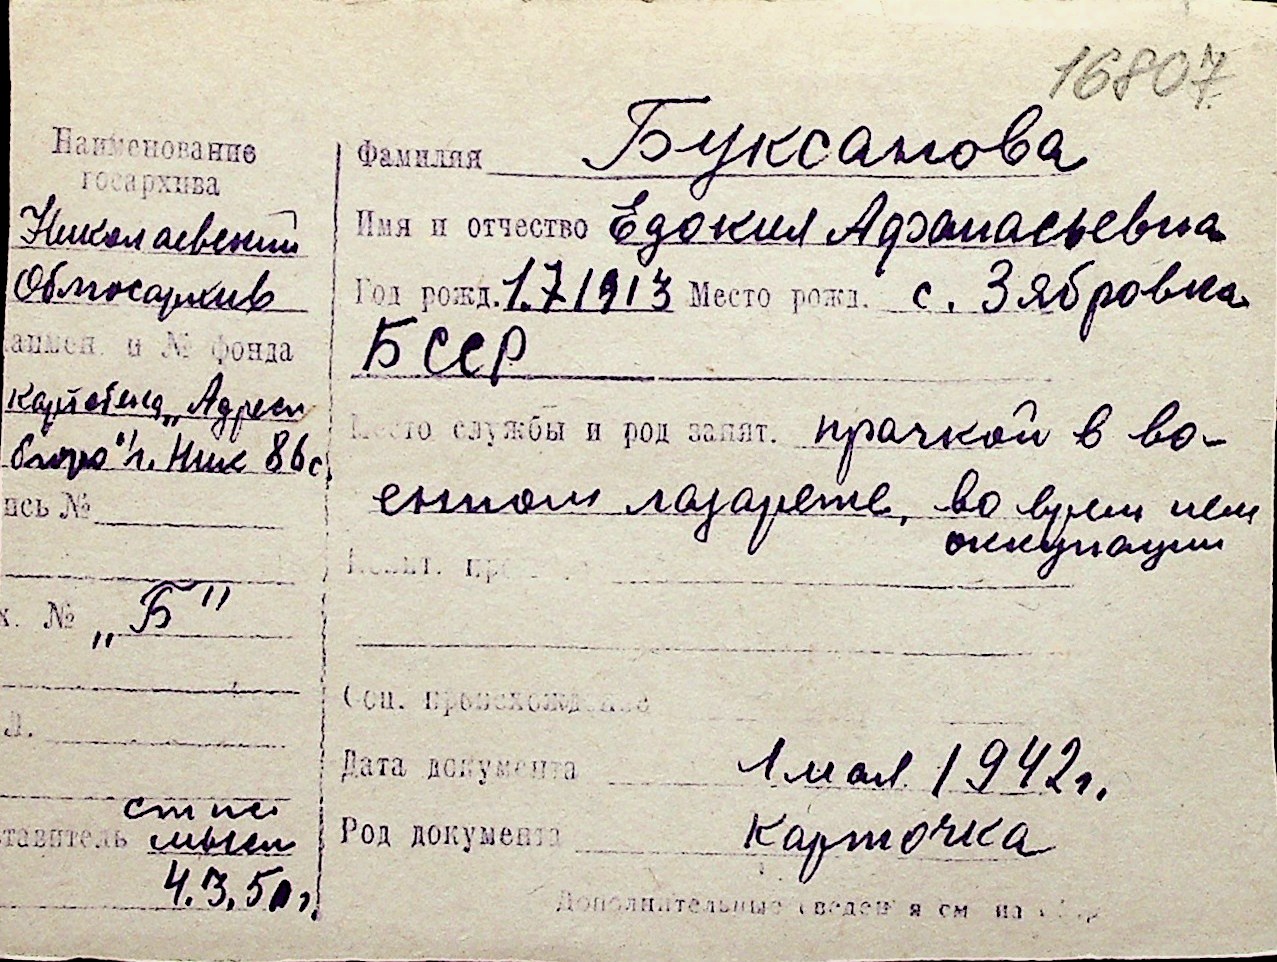 16807
Наименование
госархива
Николаевский
Облгосархив
аимен. и № фонда
картотека „Адресн
бюро" г. Ник 86с.
ись №
х. № „Б"
Л.
ставитель
4.3.50г.
Фамилия Буксанова
Имя и отчество Едокия Афанасьевна
Год рожд. 1.7 1913 Место рожд. с. Зябровка
БССР
Место службы и род занят. прачкой в во-
енном лазарете, во время нем
оккупации
Соц. происхождение
Дата документа 1 мая 1942г.
Род документа Карточка
Дополнительные сведения см на обор